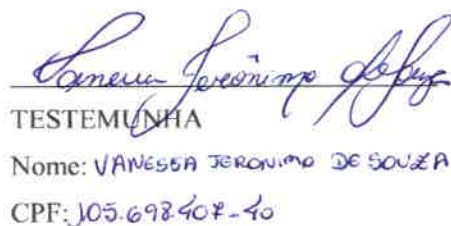 Vanessa Jerônimo de Souza
TESTEMUNHA
Nome: VANESSA JERONIMO DE SOUZA
CPF: 105.698.407-40